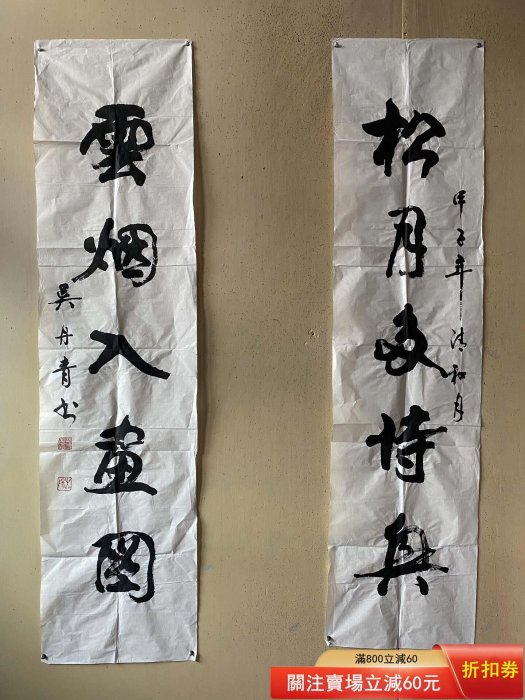 甲子年清和月
松月多詩興
雲烟入画圖
吴丹青书
滿800立減60
關注賣場立減60元
折扣券